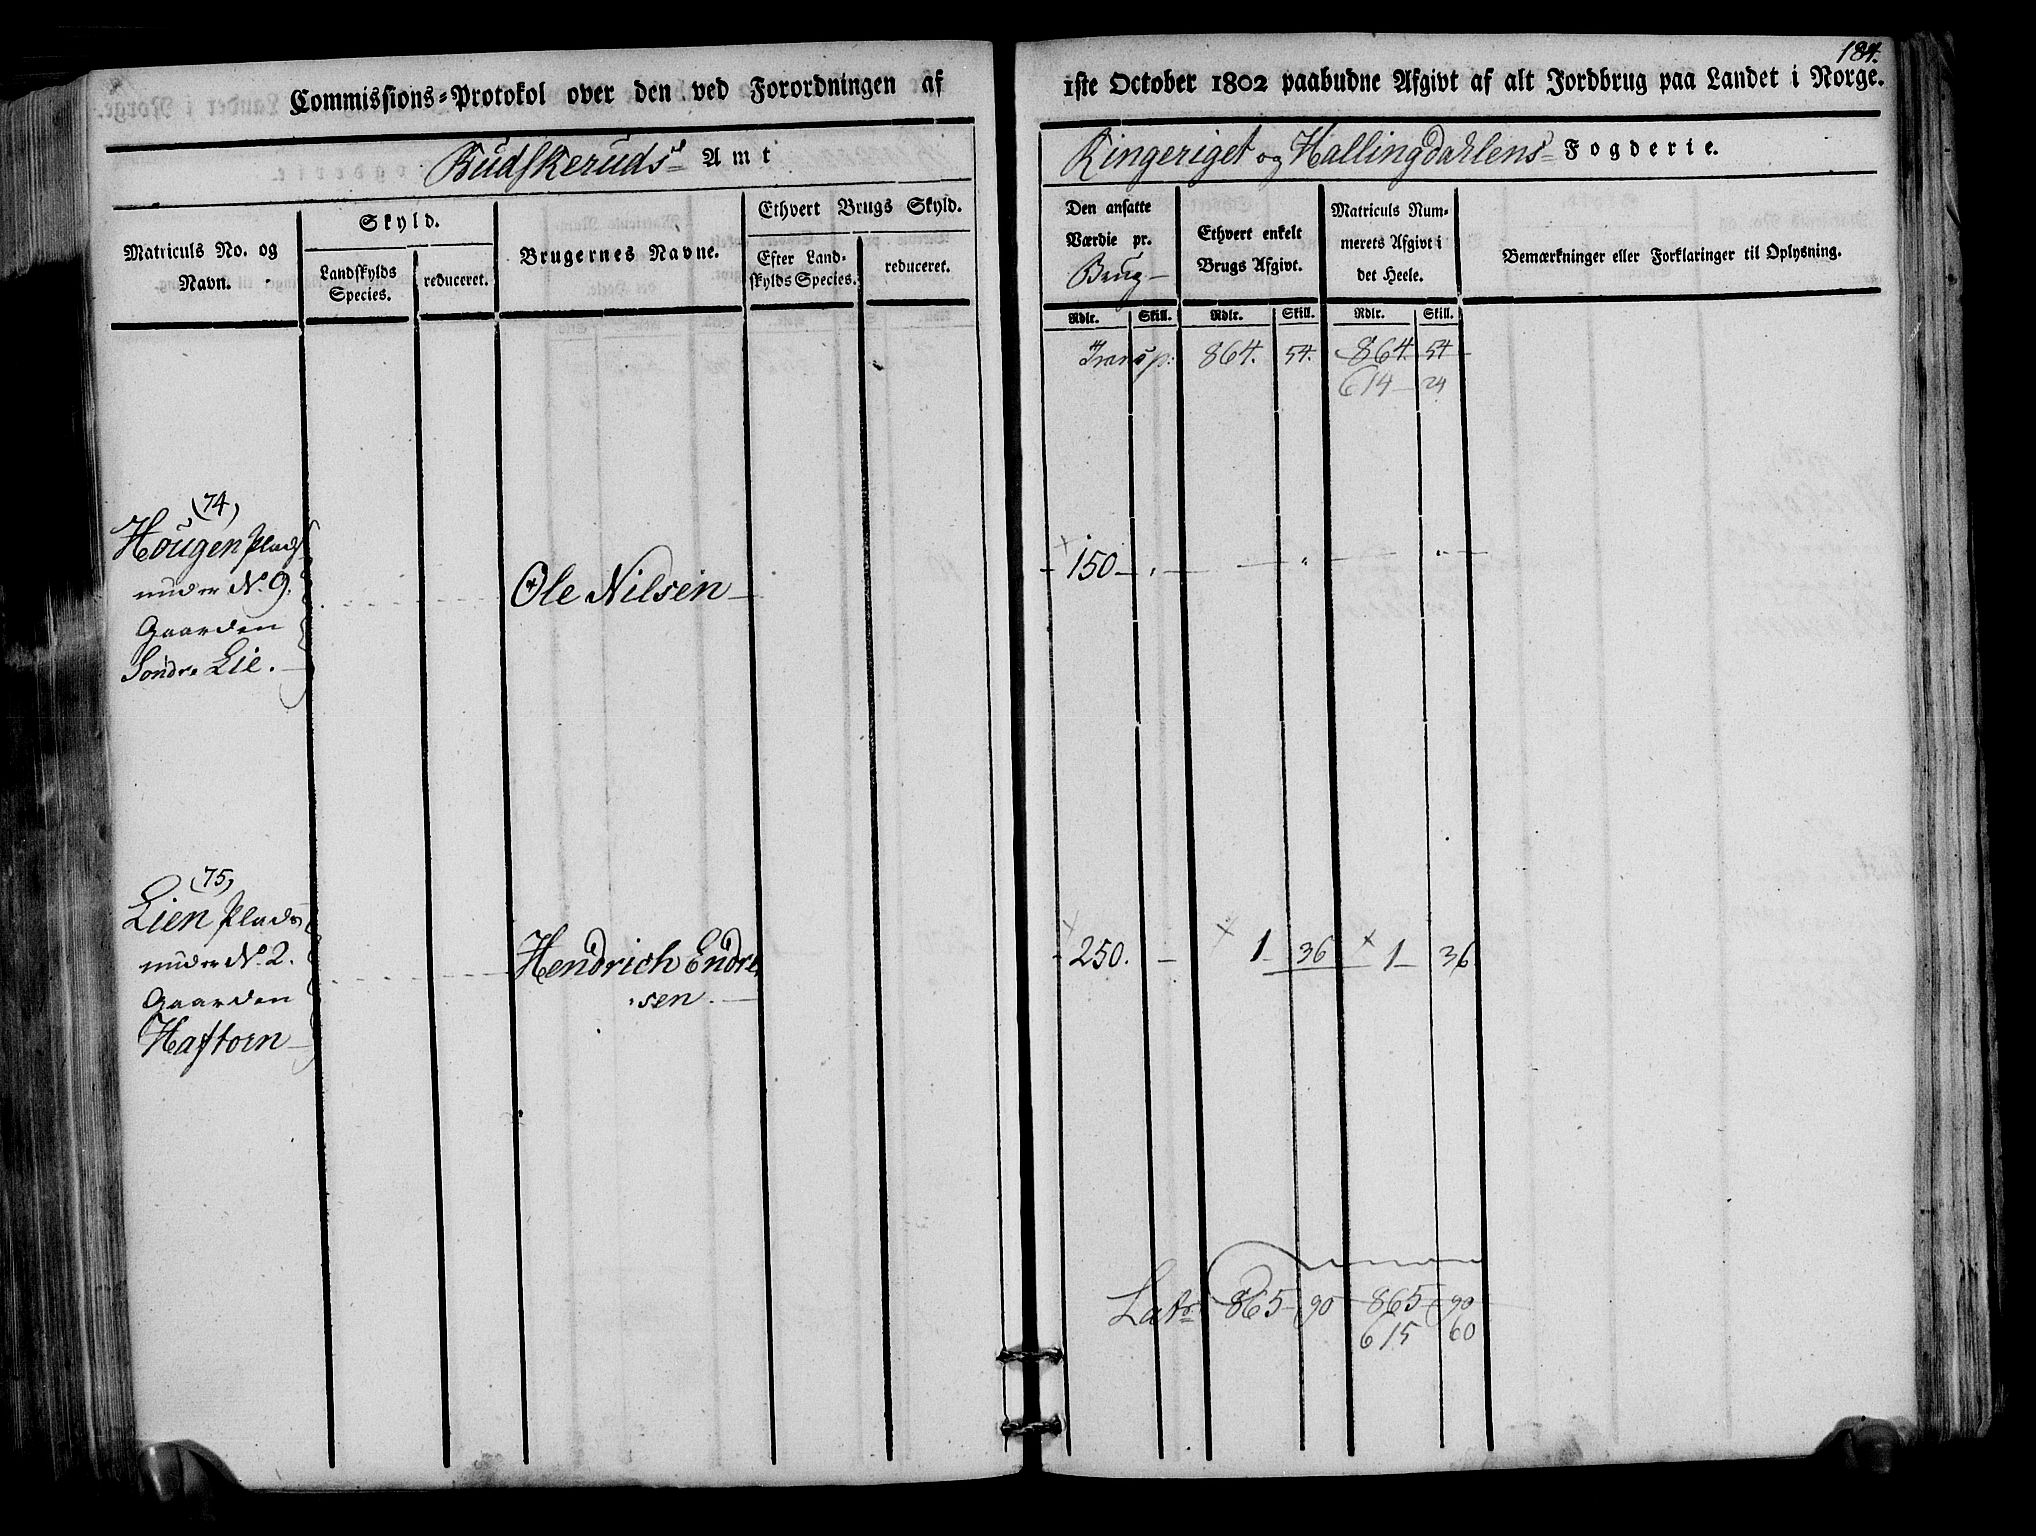 184.
Commissions-Protokol over den ved Forordningen af 1ste October 1802 paabudne Afgivt af alt Jordbrug paa Landet i Norge.
Budskeruds Amt
Ringeriget og Hallingdahlens Fogderie.
Matriculs No. og Navn.
Skyld.
Landskylds Species.
reduceret.
Brugernes Navne.
Ethvert Brugs Skyld.
Efter Landskylds Species.
reduceret.
Den ansatte Værdie pr. Brug
Ethvert enkelt Brugs Afgivt.
Matriculs Nummerets Afgivt i det Heele.
Bemærkninger eller Forklaringer til Oplysning.
Rdlr. Skill. Rdlr. Skill. Rdlr. Skill.
Transp: 864. 54. 864. 54
614 24
(74)
Hougen Plads
under No. 9.
Gaarden
Søndre Lie.
Ole Nilsen
150
(75)
Lien Plads
under No. 2.
Gaarden
Haftorn
Hendrich Endre
sen.
250. 1 36 1 36
Latr 865 90 865 90
615 60